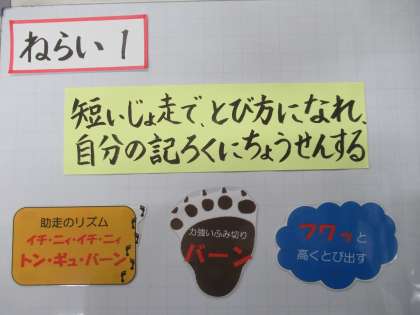 ねらい1
短いじょ走で、とび方になれ、
自分の記ろくにちょうせんする
助走のリズム
イチ・ニィ・イチ・ニィ
トン・ギュ・バーン
力強いふみ切り
バーン
フワッと
高くとび出す